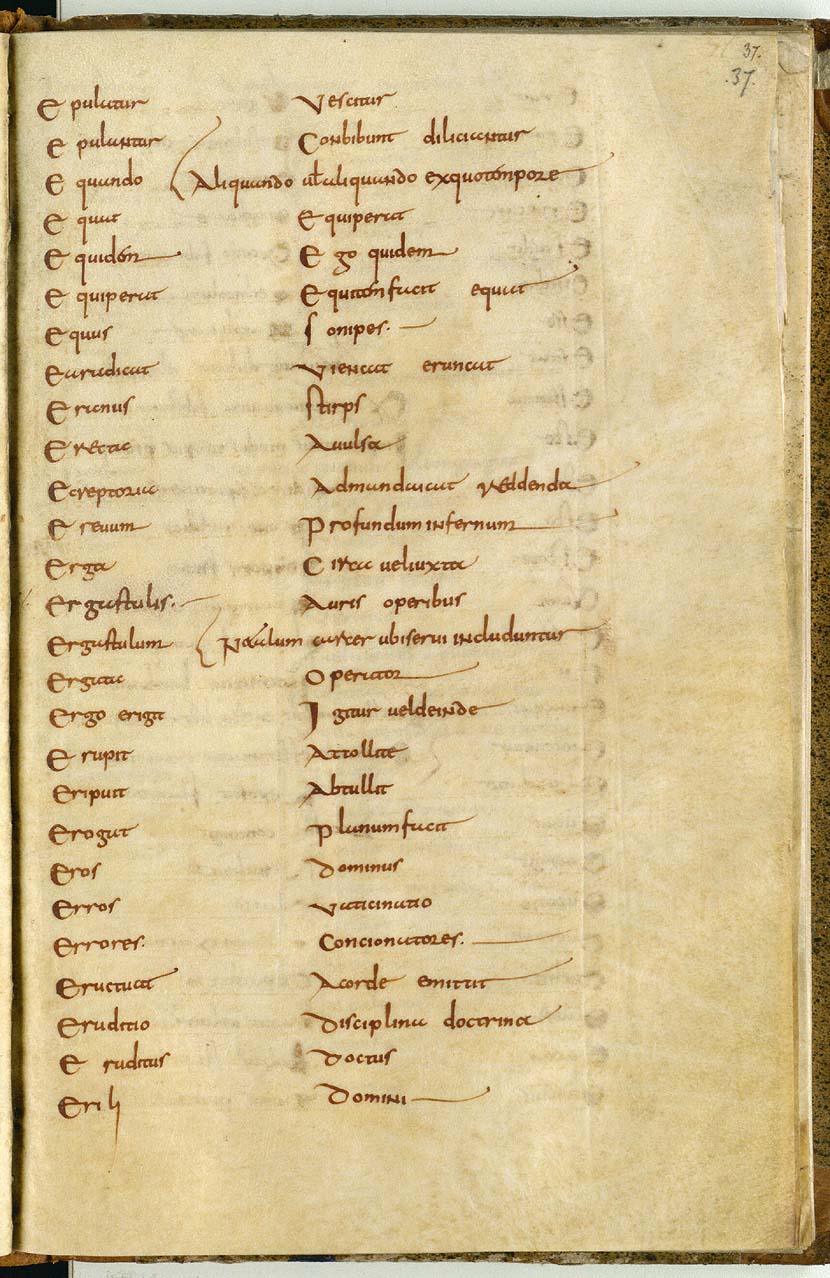 37.
37.
Epulatur Vescitur
Epulantur Conbibunt diliciantur
Equando Aliquando ul aliquando exquotenpore
Equat Equiperat
Equidem Ego quidem
Equiperat Equitatem facit equat
Equus Sonipes.
Earadicat Viencat eruncat
Stirps
Erectae Auulsa
Ereptoriae Admanducat reddenda
Ereuum Profundum infernum
Erga Circa uel iuxta
Ergastulis. Auris operibus
Ergastulum carcer ubi serui includuntur
Ergata Operator
Ergo eriga Igitur uel deinde
Erupit Attollite
Eripuit Abtullit
Erogat Planum facit
Eros Dominus
Erros Vaticinatio
Errores. Concionatores.
Eructuat Acorde emitat
Eruditio Disciplina doctrina
Eruditus Doctus
Erili Domini